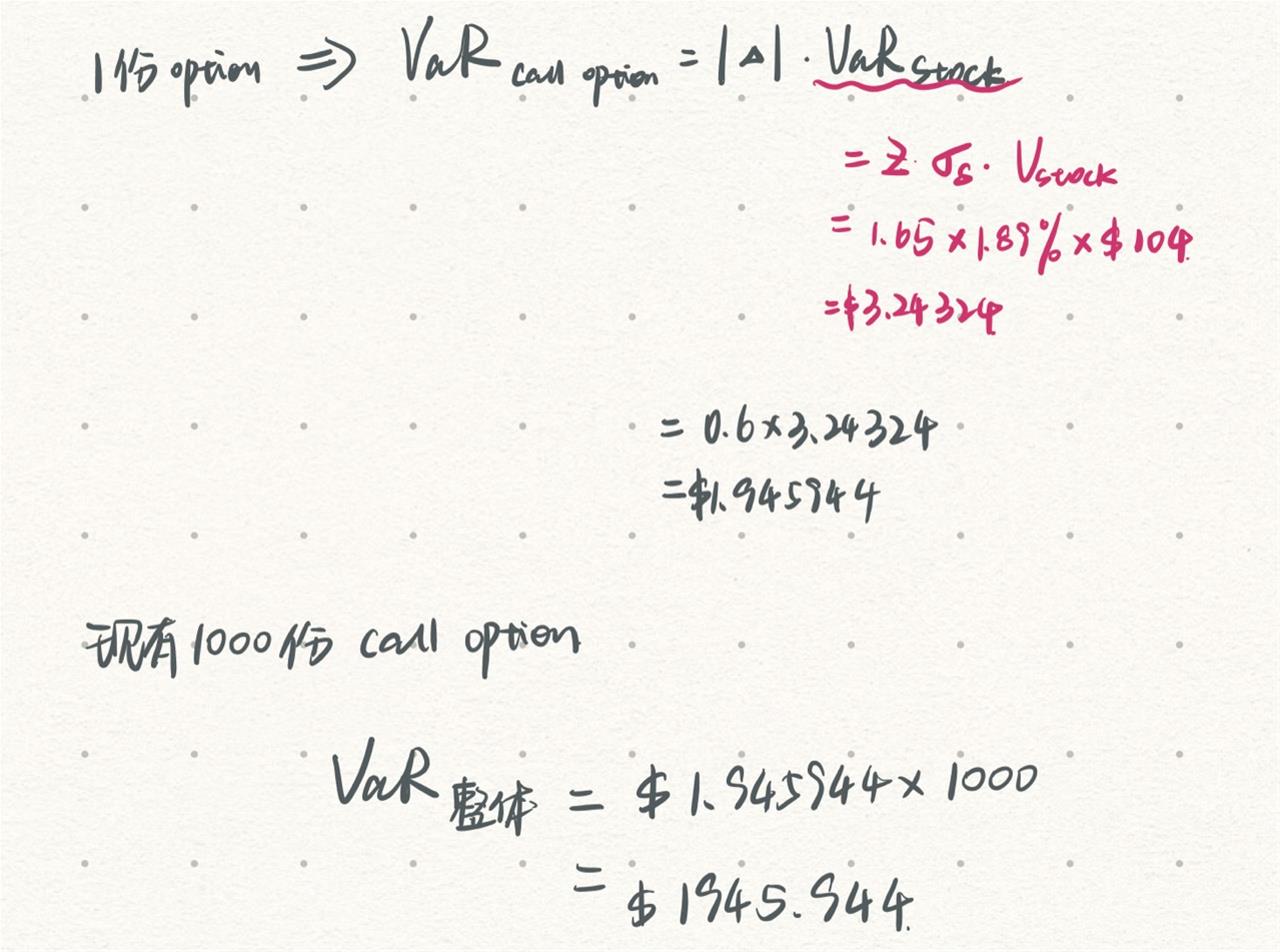 1份 option ⇒ VaR call option = |Δ| · VaR stock
= z · σs · Vstock
= 1.65 × 1.89% × $104
= $3.24324
= 0.6 × 3.24324
= $1.945944
现有1000份 call option
VaR 整体 = $1.945944 × 1000
= $1945.944